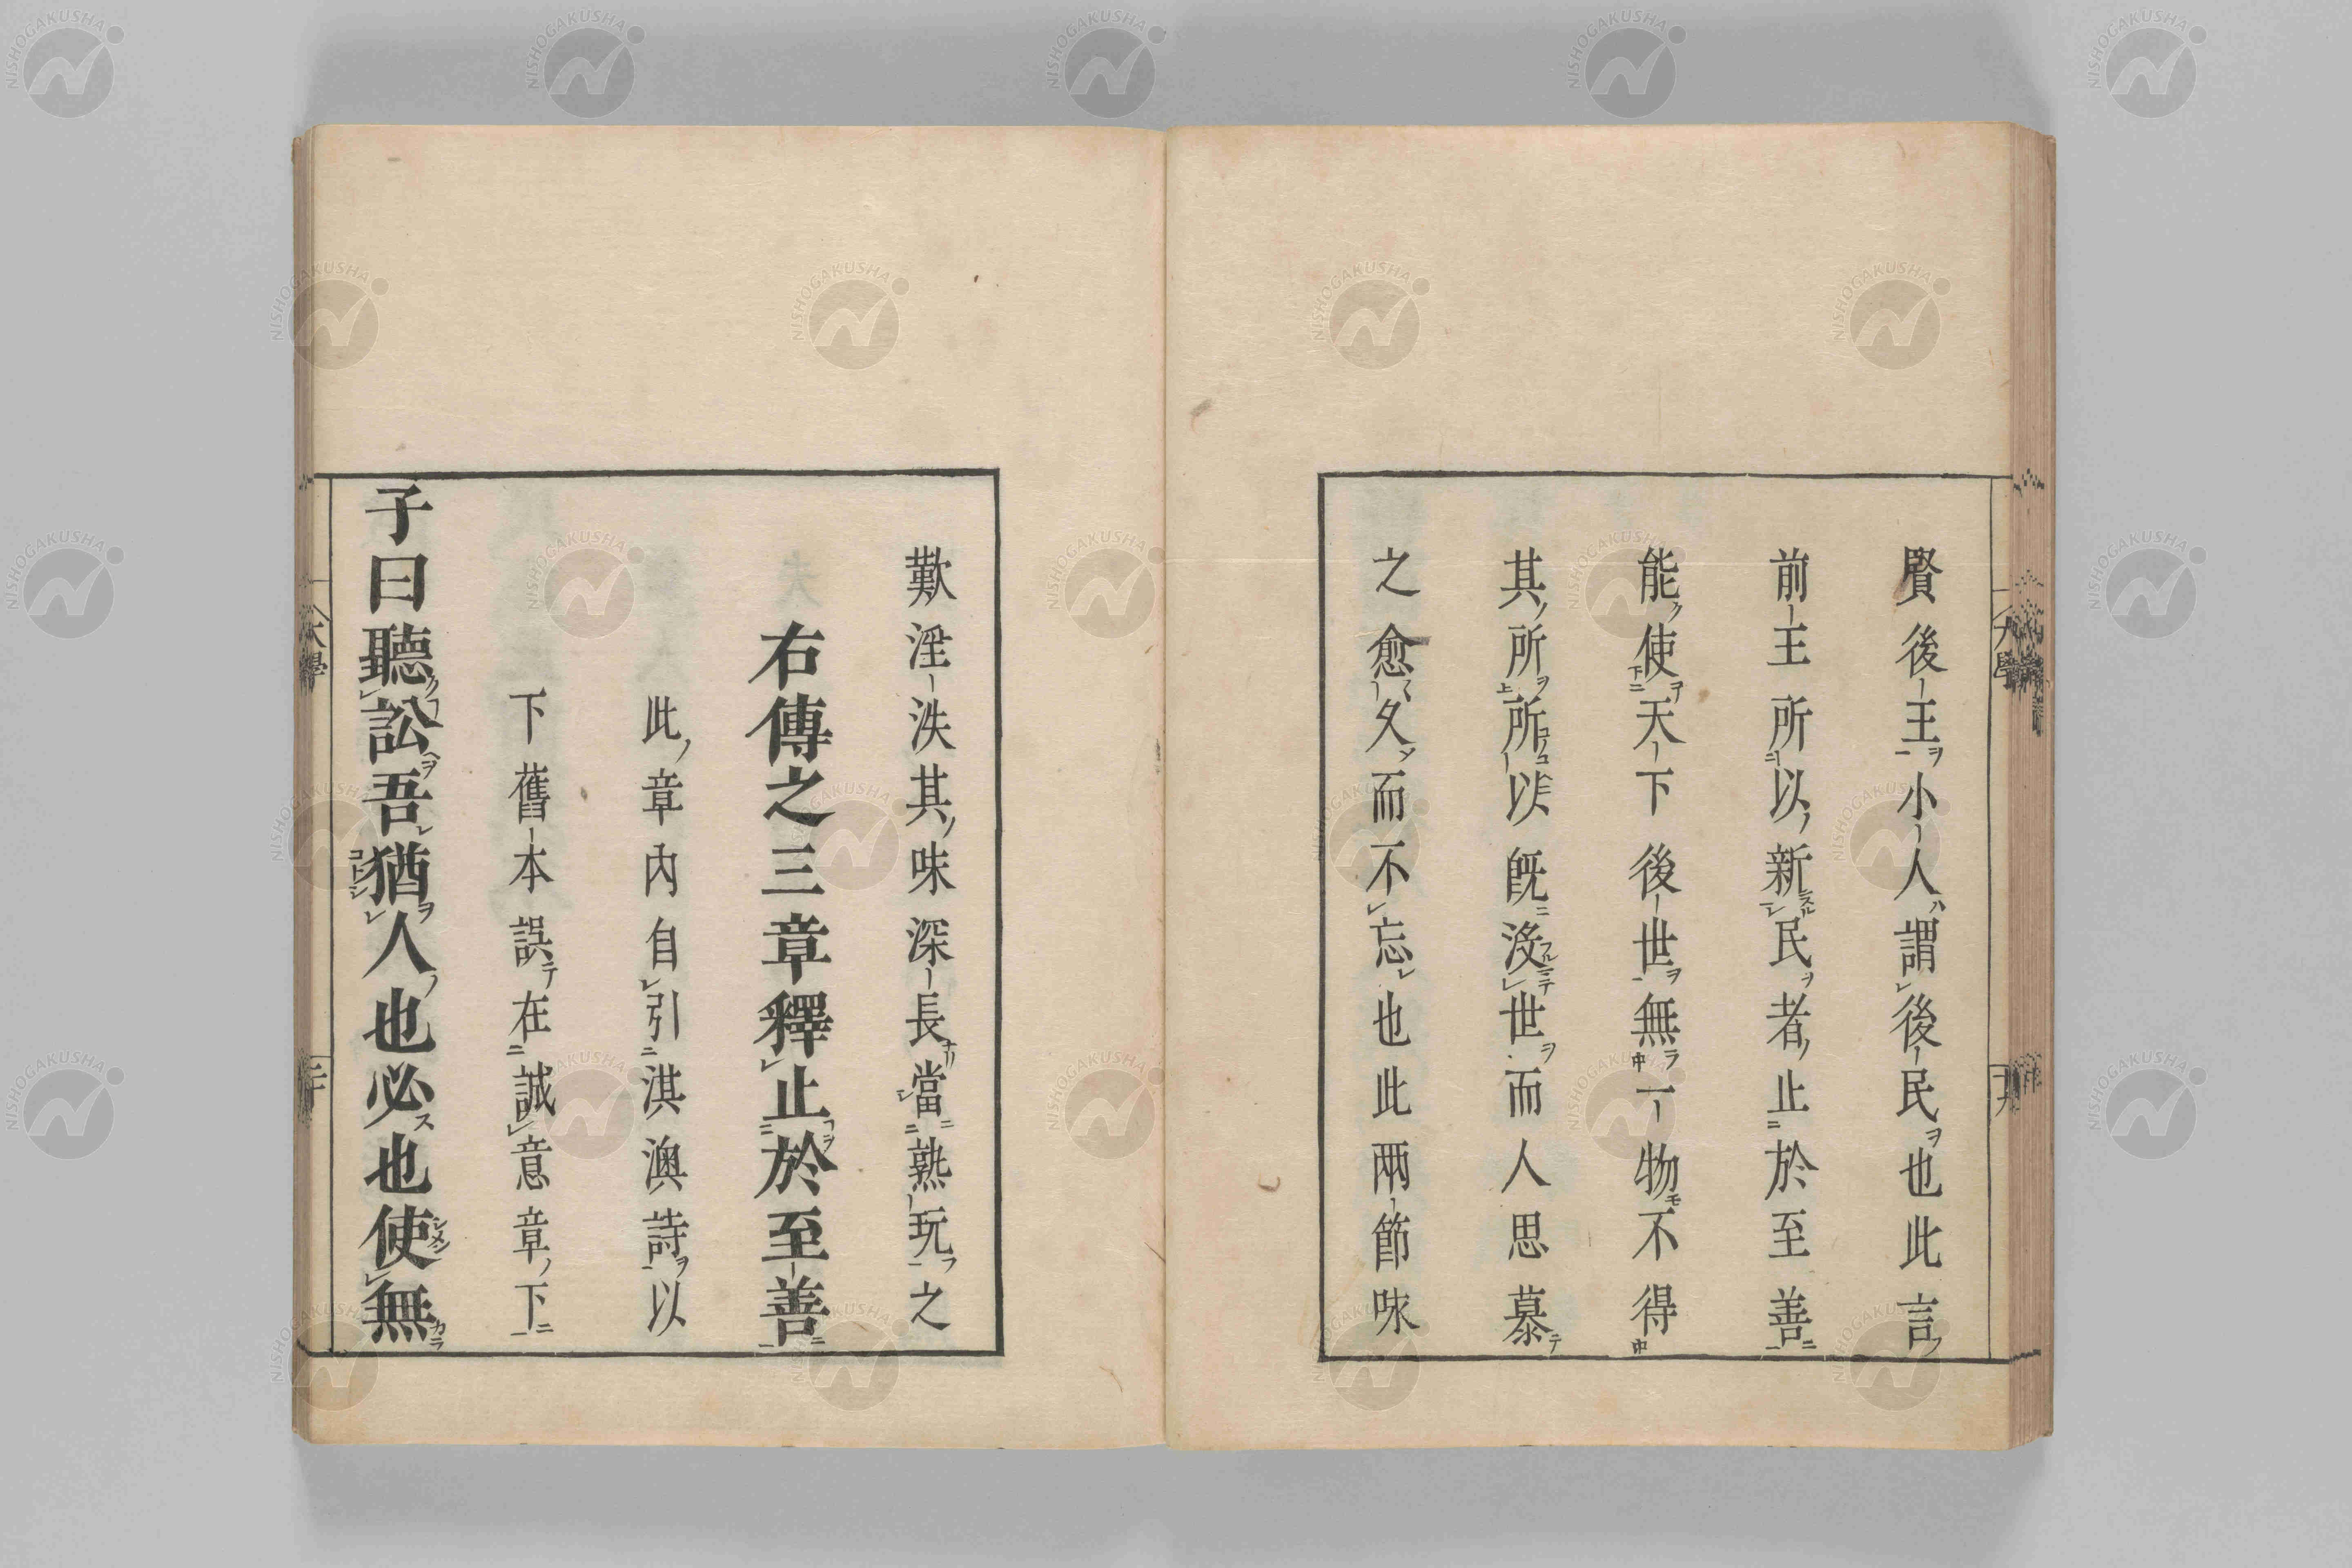 賢後王小人謂後民也此言
前王所以新民者止於至善
能使天下後世無一物不得
其所所以旣沒世而人思慕
之愈久而不忘也此兩節咏
歎淫泆其味深長當熟玩之
右傳之三章釋止於至善
此章內自引淇澳詩以
下舊本誤在誠意章下
子曰聽訟吾猶人也必也使無
大學
二十
NISHOGAKUSHA